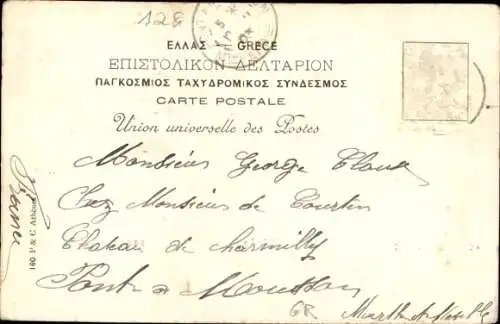 128
ΕΛΛΑΣ GRECE
ΕΠΙΣΤΟΛΙΚΟΝ ΔΕΛΤΑΡΙΟΝ
ΠΑΓΚΟΣΜΙΟΣ ΤΑΧΥΔΡΟΜΙΚΟΣ ΣΥΝΔΕΣΜΟΣ
CARTE POSTALE
Union universelle des Postes
Monsieur George
Chez Monsieur de Courtin
Chateau de Charmilly
Pont a Mousson
Meurthe
160 P & C Athènes